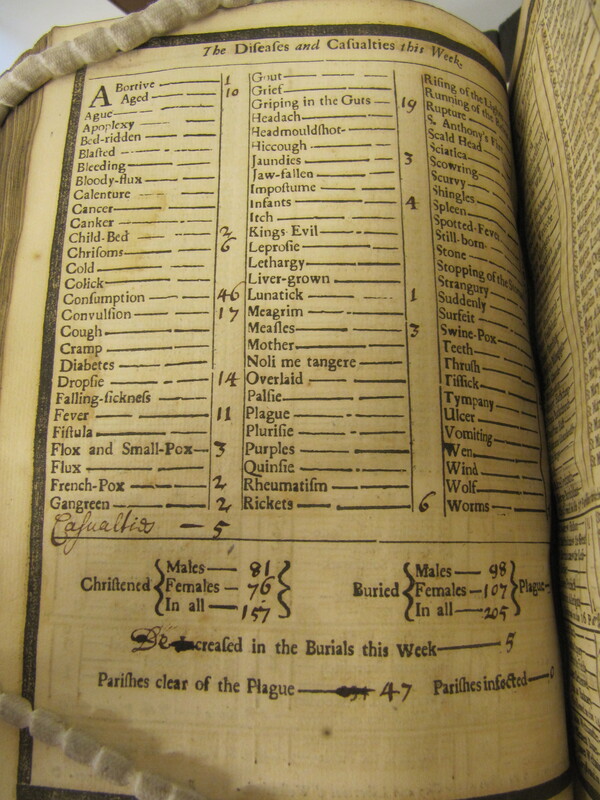 The Diseaſes and Casualties this Week.
ABortive 1
Aged 10
Ague
Apoplexy
Bed-ridden
Blaſted
Bleeding
Bloody-flux
Calenture
Cancer
Canker
Child-Bed 2
Chriſoms 6
Cold
Colick
Conſumption 46
Convulſion 17
Cough
Cramp
Diabetes
Dropſie 14
Falling-ſickneſs
Fever 11
Fiſtula
Flox and Small-Pox 3
Flux
French-Pox 2
Gangreen 2
Casualties — 5
Gout
Grief
Griping in the Guts 19
Headach
Headmouldſhot
Hiccough
Jaundies 3
Jaw-fallen
Impoſtume
Infants 4
Itch
Kings Evil
Leproſie
Lethargy
Liver-grown
Lunatick 1
Meagrim
Meaſles 3
Mother
Noli me tangere
Overlaid
Palſie
Plague
Pluriſie
Purples
Quinſie
Rheumatiſm
Rickets 6
Riſing of the
Running of the
Rupture
S. Anthony's
Scald Head
Sciatica
Scowring
Scurvy
Shingles
Spleen
Spotted-Fever
Still-born
Stone
Stopping of the
Strangury
Suddenly
Surfeit
Swine-Pox
Teeth
Thruſh
Tiſſick
Tympany
Ulcer
Vomiting
Wen
Wind
Wolf
Worms
Chriſtened { Males — 81 Females — 76 In all — 157 }
Buried { Males — 98 Females — 107 In all — 205 } Plague
Decreaſed in the Burials this Week — 5
Pariſhes clear of the Plague — 47 Pariſhes infected — 0